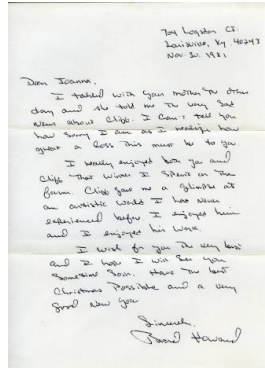 704 Logston Ct.
Louisville, Ky 40243
Nov 30. 1981
Dear Joanna,
I talked with your mother the other
day and she told me the very sad
news about Cliff. I can't tell you
how sorry I am as I realize how
great a loss this must be to you
I really enjoyed both you and
Cliff that I spent on the
farm. Cliff gave me a glimpse at
an artistic world I had never
experienced before I enjoyed him
and I enjoyed his work.
I wish for you the very best
and I hope I will see you
sometime soon. Have the best
Christmas possible and a very
good New Year
Sincerely,
Howard